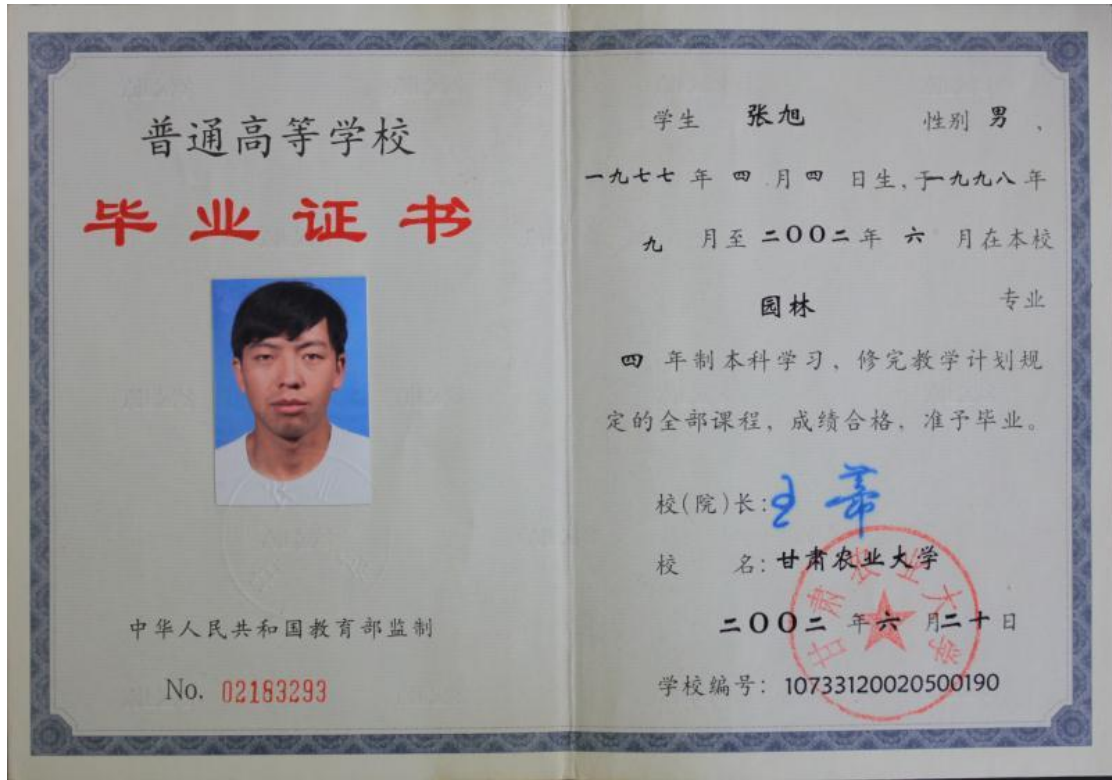 普通高等学校
毕业证书
中华人民共和国教育部监制
No. 02183293
学生 张旭 性别 男、
一九七七 年 四 月 四 日生,于一九九八 年
九 月至 二〇〇二 年 六 月在本校
园林 专业
四 年制本科学习、修完教学计划规
定的全部课程,成绩合格,准予毕业。
校(院)长:王蒂
校 名:甘肃农业大学
二〇〇二 年 六 月 二十 日
学校编号:10733120020500190
甘肃农业大学